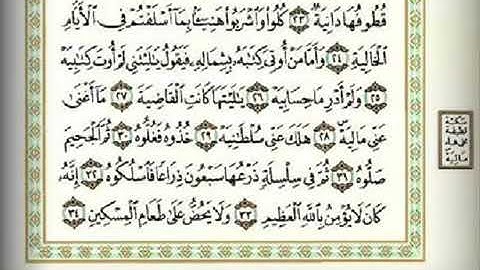 قُطُوفُهَا دَانِيَةٌ ٢٣ كُلُوا۟ وَٱشْرَبُوا۟ هَنِيٓـًٔۢا بِمَآ أَسْلَفْتُمْ فِى ٱلْأَيَّامِ
ٱلْخَالِيَةِ ٢٤ وَأَمَّا مَنْ أُوتِىَ كِتَٰبَهُۥ بِشِمَالِهِۦ فَيَقُولُ يَٰلَيْتَنِى لَمْ أُوتَ كِتَٰبِيَهْ
٢٥ وَلَمْ أَدْرِ مَا حِسَابِيَهْ ٢٦ يَٰلَيْتَهَا كَانَتِ ٱلْقَاضِيَةَ ٢٧ مَآ أَغْنَىٰ
عَنِّى مَالِيَهْ ۜ ٢٨ هَلَكَ عَنِّى سُلْطَٰنِيَهْ ٢٩ خُذُوهُ فَغُلُّوهُ ٣٠ ثُمَّ ٱلْجَحِيمَ
صَلُّوهُ ٣١ ثُمَّ فِى سِلْسِلَةٍ ذَرْعُهَا سَبْعُونَ ذِرَاعًا فَٱسْلُكُوهُ ٣٢ إِنَّهُۥ
كَانَ لَا يُؤْمِنُ بِٱللَّهِ ٱلْعَظِيمِ ٣٣ وَلَا يَحُضُّ عَلَىٰ طَعَامِ ٱلْمِسْكِينِ ٣٤
سكتة
لطيفة
على هاء
ماليه